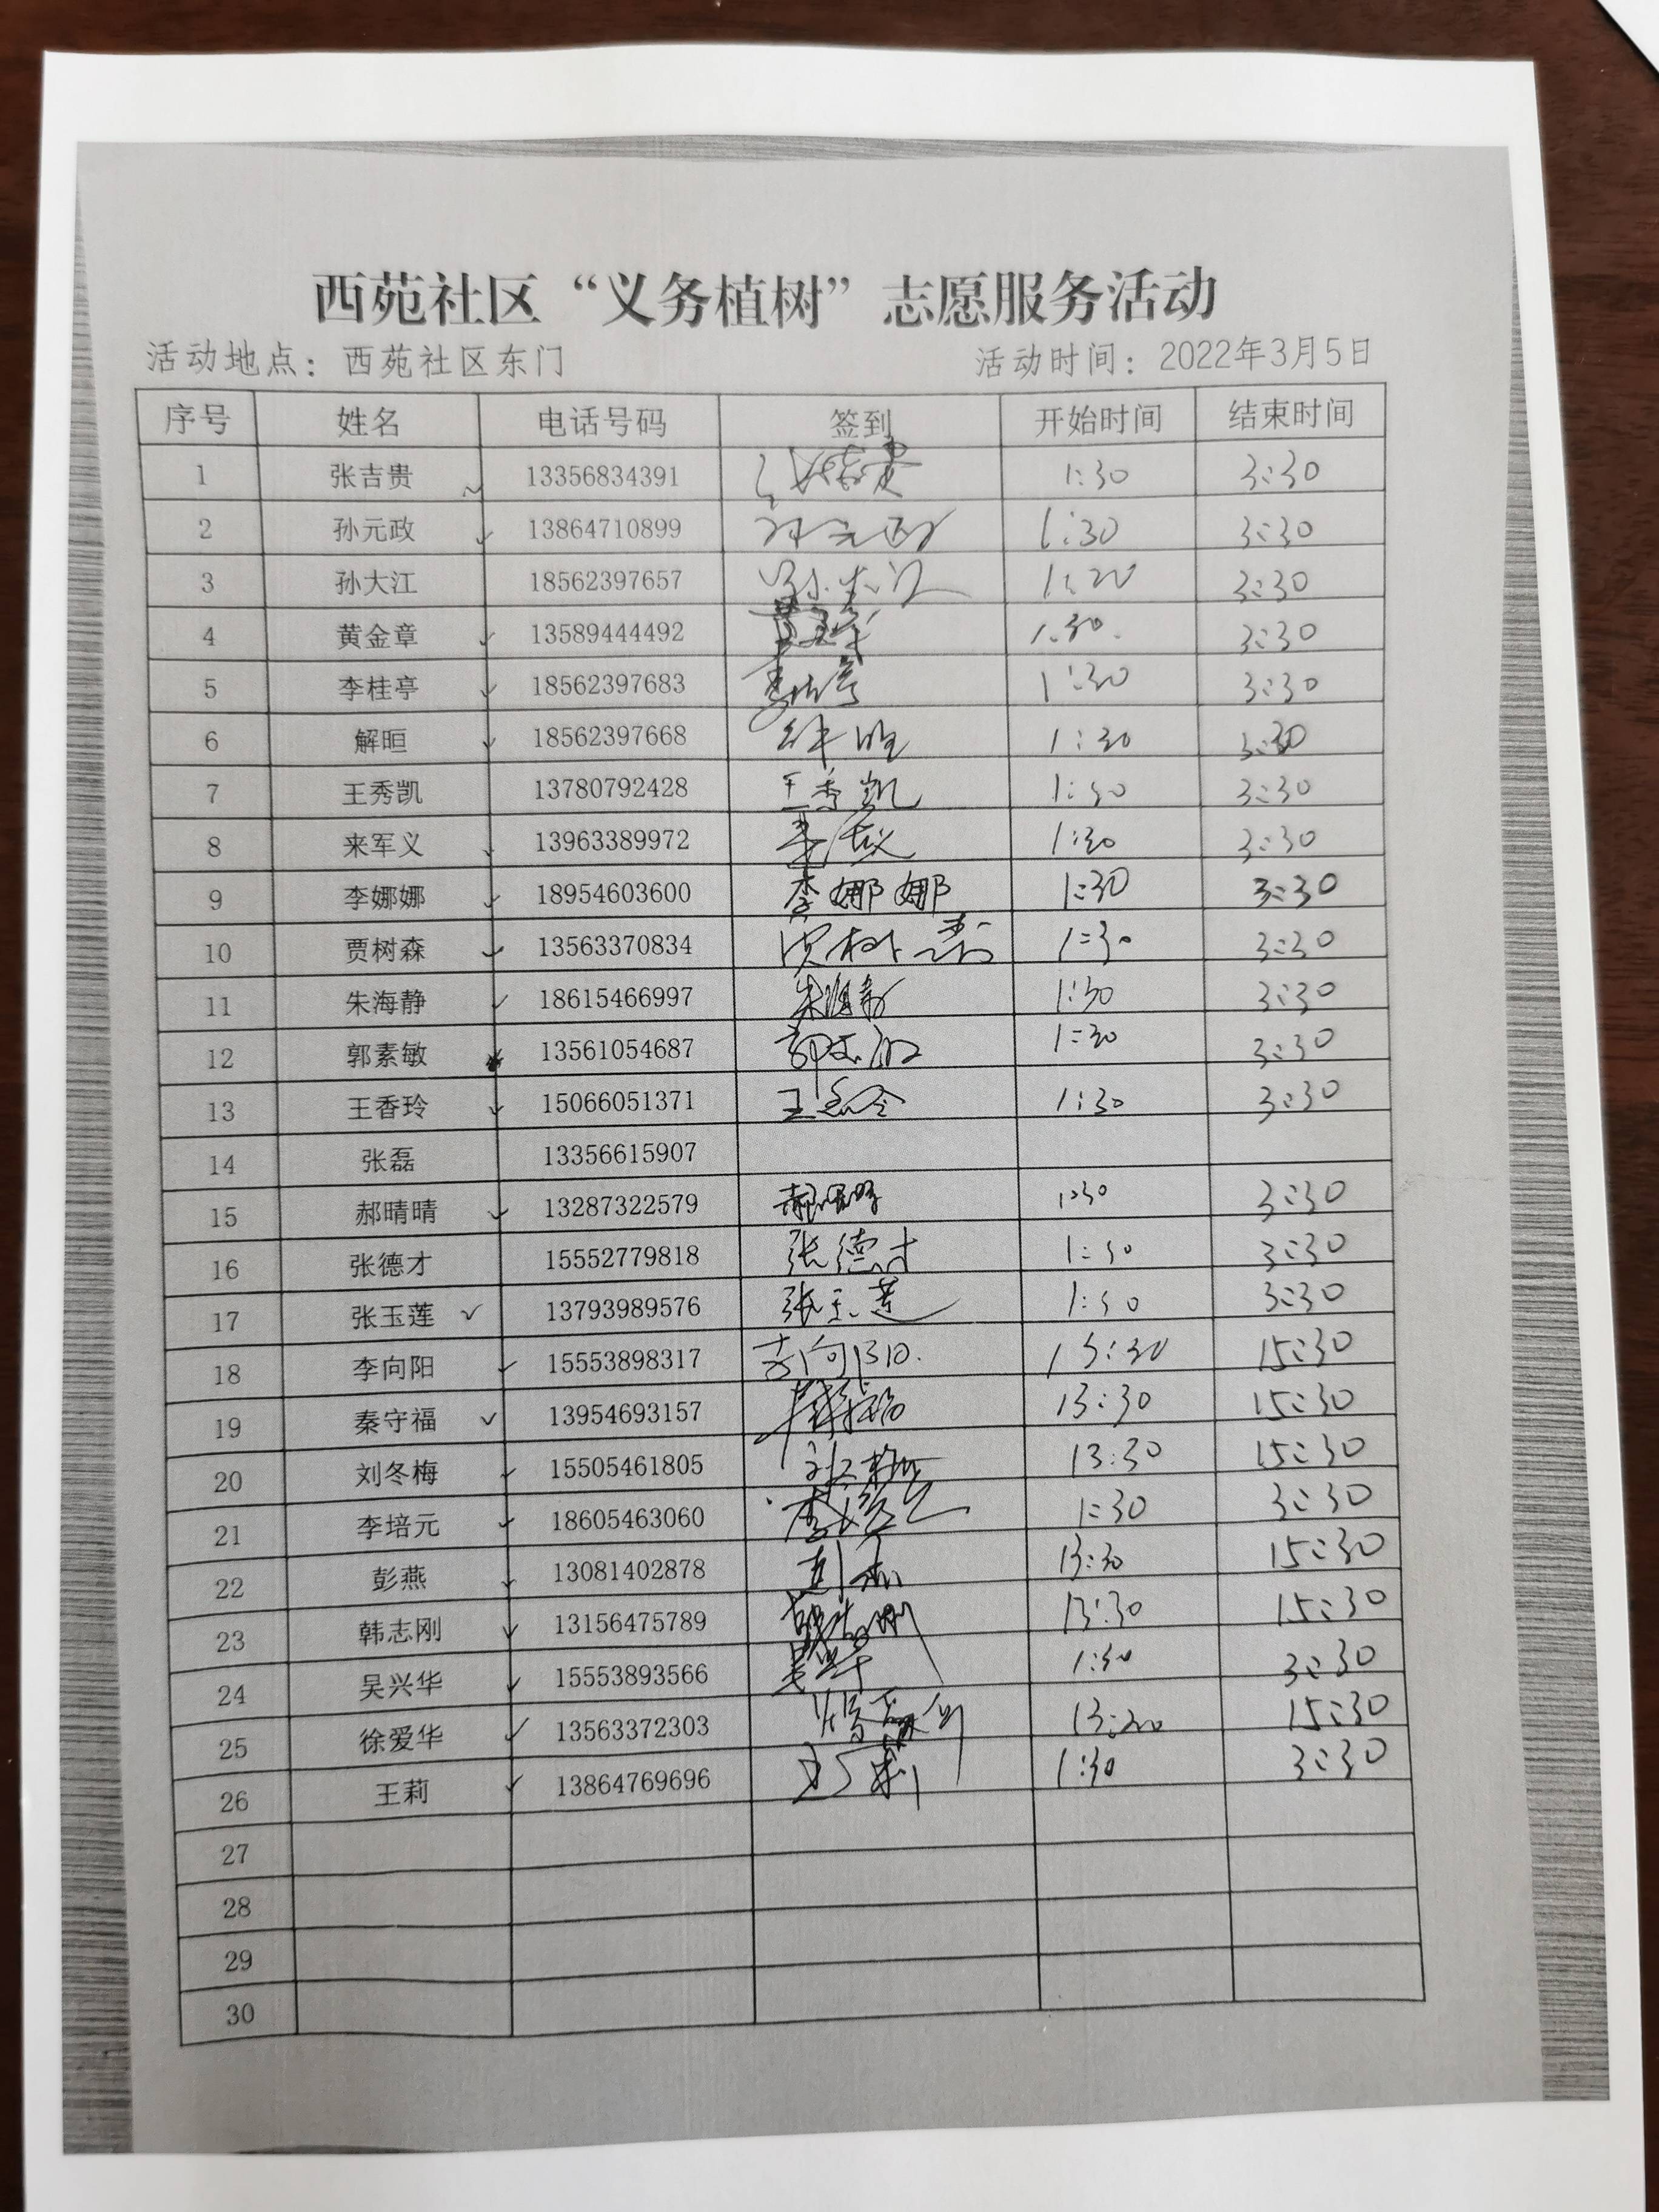 西苑社区“义务植树”志愿服务活动
活动地点：西苑社区东门 活动时间：2022年3月5日
序号 姓名 电话号码 签到 开始时间 结束时间
1 张吉贵 13356834391 张吉贵 1:30 3:30
2 孙元政 13864710899 孙元政 1:30 3:30
3 孙大江 18562397657 孙大江 3:30
4 黄金章 13589444492 黄金章 1:30 3:30
5 李桂亭 18562397683 李桂亭 1:30 3:30
6 解晅 18562397668 解晅 1:30 3:30
7 王秀凯 13780792428 王秀凯 1:30 3:30
8 来军义 13963389972 来军义 1:30 3:30
9 李娜娜 18954603600 李娜娜 1:30 3:30
10 贾树森 13563370834 贾树森 1:30 3:30
11 朱海静 18615466997 朱海静 1:30 3:30
12 郭素敏 13561054687 郭素敏 1:30 3:30
13 王香玲 15066051371 王香玲 1:30 3:30
14 张磊 13356615907
15 郝晴晴 13287322579 郝晴晴 1:30 3:30
16 张德才 15552779818 张德才 1:30 3:30
17 张玉莲 13793989576 张玉莲 1:30 3:30
18 李向阳 15553898317 李向阳 13:30 15:30
19 秦守福 13954693157 秦守福 13:30 15:30
20 刘冬梅 15505461805 刘冬梅 13:30 15:30
21 李培元 18605463060 李培元 1:30 3:30
22 彭燕 13081402878 彭燕 13:30 15:30
23 韩志刚 13156475789 韩志刚 13:30 15:30
24 吴兴华 15553893566 吴兴华 1:30 3:30
25 徐爱华 13563372303 15:30
26 王莉 13864769696 王莉 1:30 3:30
27
28
29
30